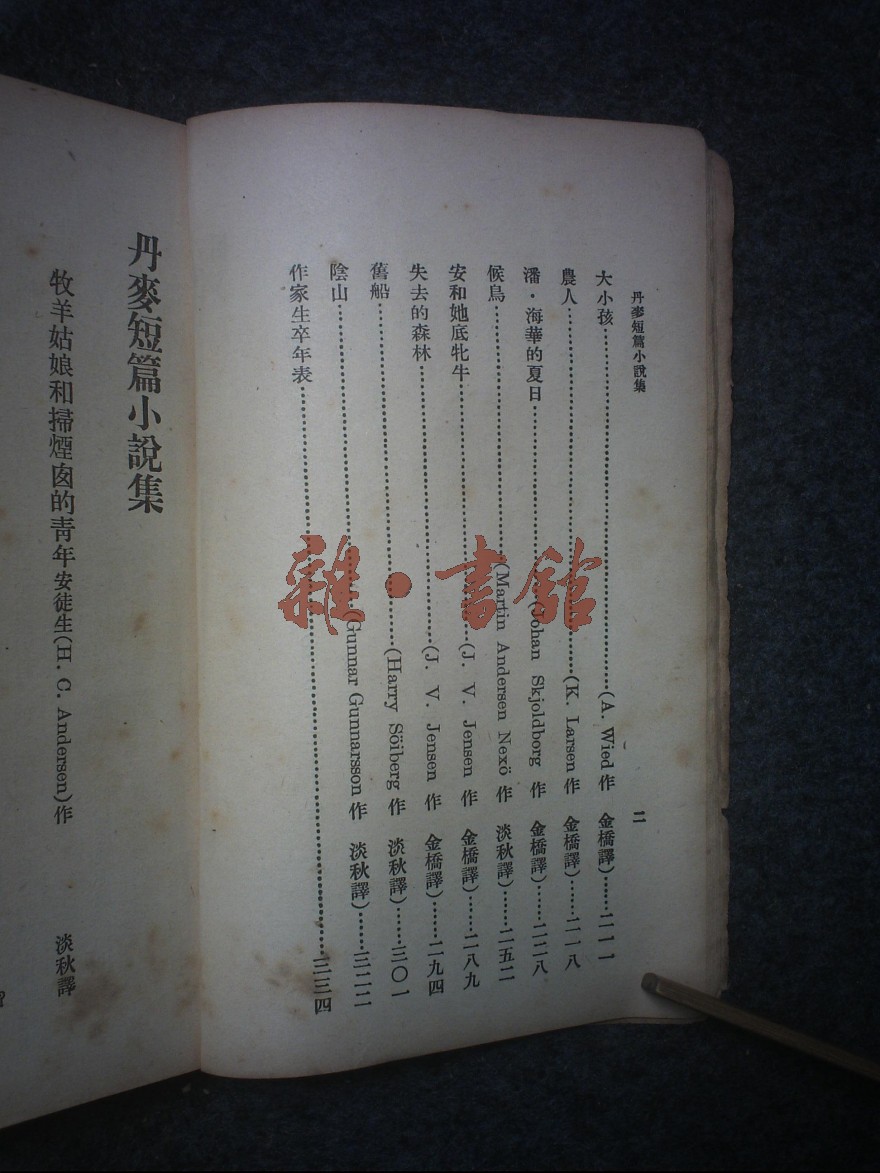 丹麥短篇小說集
二
大小孩……(A. Wied 作 金橋譯)……二一一
農人……(K. Larsen 作 金橋譯)……二一八
潘·海華的夏日……(Johan Skjoldborg 作 金橋譯)……二二八
候鳥……(Martin Andersen Nexö 作 淡秋譯)……二五二
安和她底牝牛……(J. V. Jensen 作 金橋譯)……二八九
失去的森林……(J. V. Jensen 作 金橋譯)……二九四
舊船……(Harry Söiberg 作 淡秋譯)……三〇一
陰山……(Gunnar Gunnarsson 作 淡秋譯)……三二二
作家生卒年表……三三四
雜·書館
丹麥短篇小說集
牧羊姑娘和掃煙囱的青年 安徒生(H. C. Andersen)作 淡秋譯